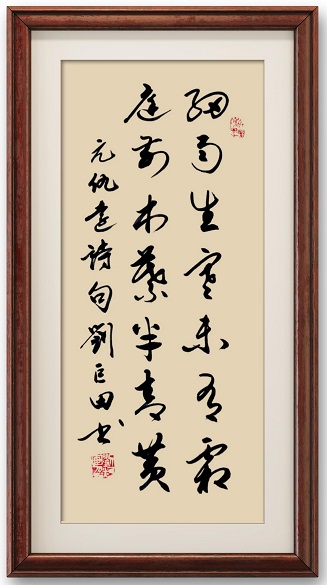 細雨生寒未有霜
庭前木葉半青黃
元仇遠詩句劉巨田書